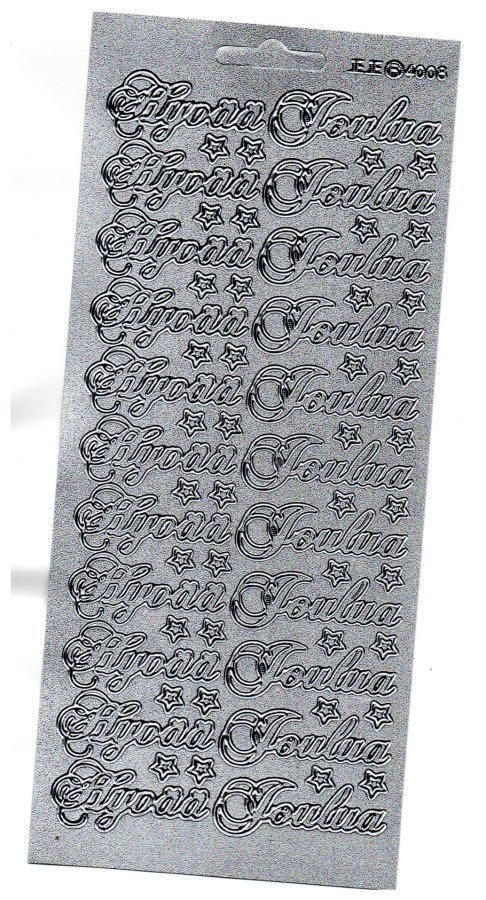 JEJE® 4003
Hyvää Joulua
Hyvää Joulua
Hyvää Joulua
Hyvää Joulua
Hyvää Joulua
Hyvää Joulua
Hyvää Joulua
Hyvää Joulua
Hyvää Joulua
Hyvää Joulua
Hyvää Joulua